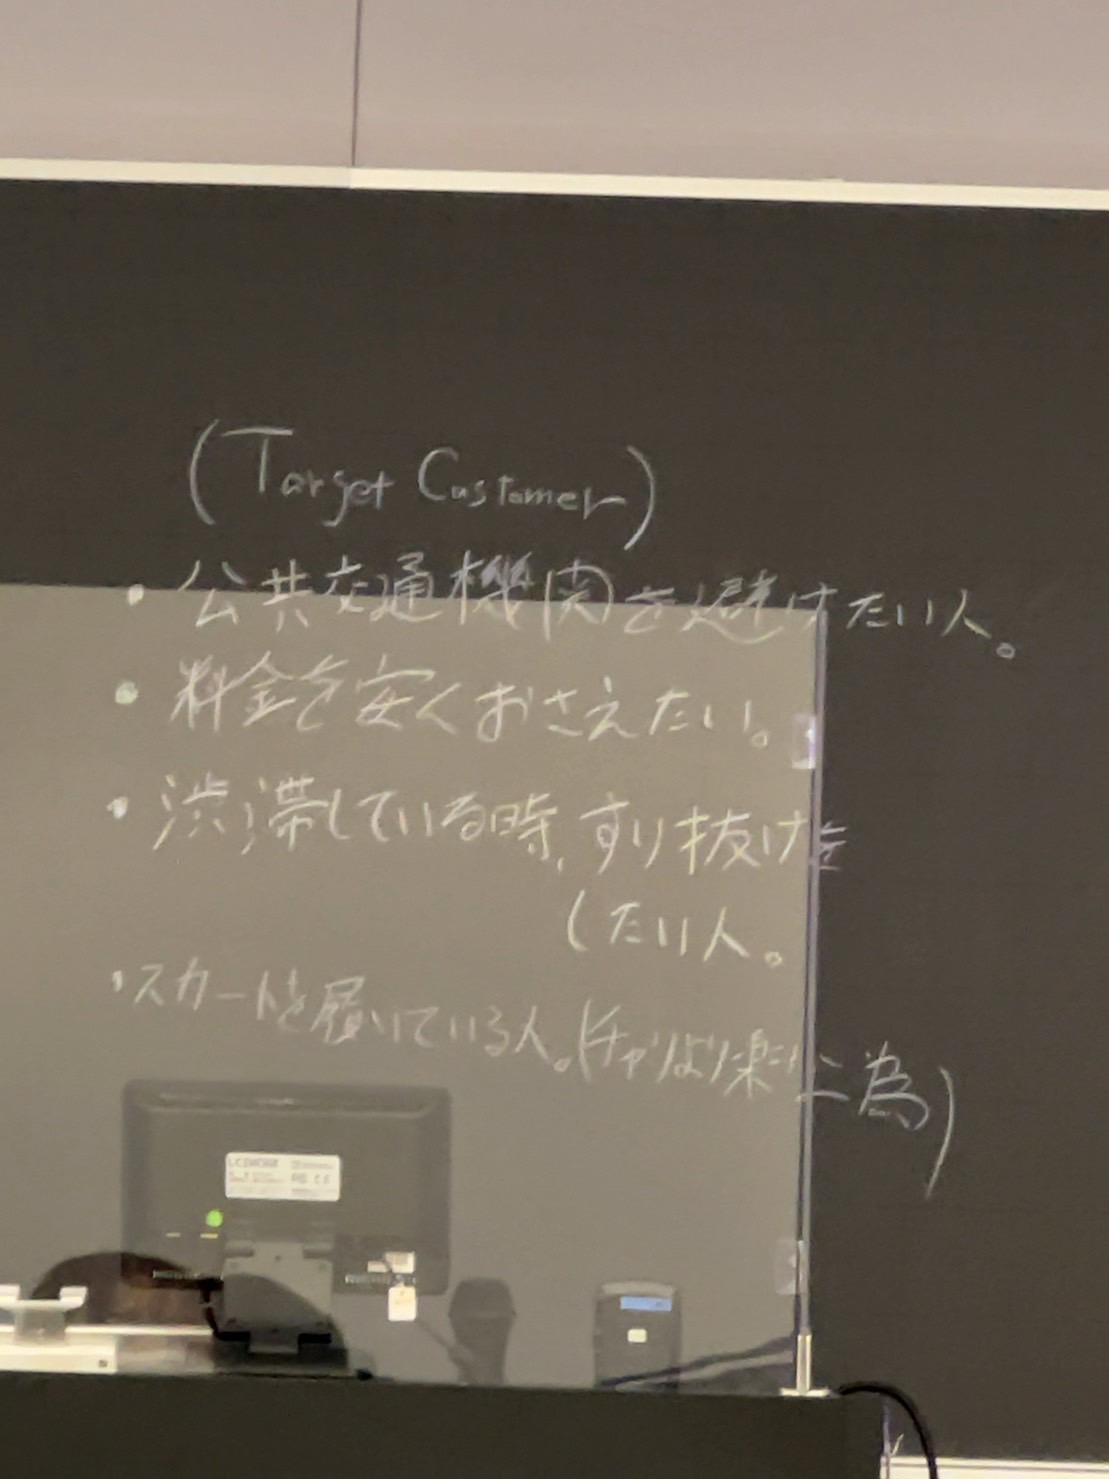 (Target Customer)
・公共交通機関を避けたい人。
・料金を安くおさえたい。
・渋滞している時、すり抜けを
したい人。
・スカートを履いている人。(チャリより楽な為)